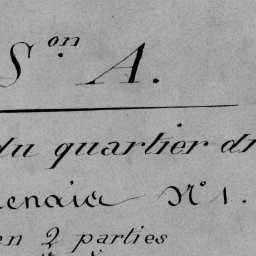 Son. A.
du quartier dr
enaie N° 1.
en 2 parties